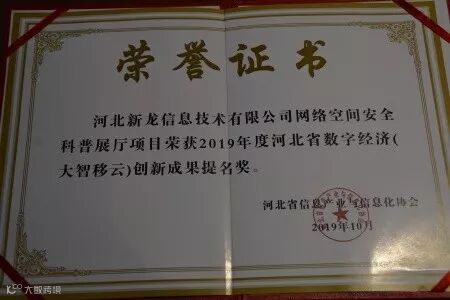 荣誉证书
河北新龙信息技术有限公司网络空间安全
科普展厅项目荣获2019年度河北省数字经济(
大智移云)创新成果提名奖。
河北省信息产业与信息化协会
2019年10月
大数跨境